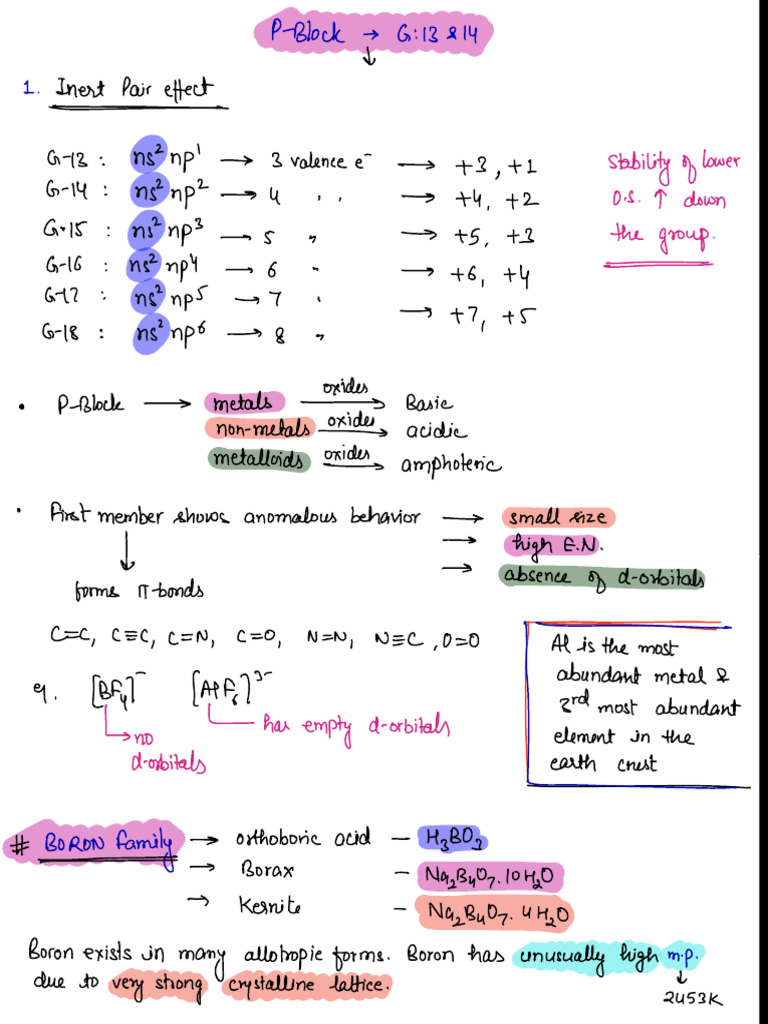 P-Block → G:13 & 14
↓
1. Inert Pair effect
G-13 : ns² np¹ → 3 valence e⁻ → +3, +1
G-14 : ns² np² → 4 ,, → +4, +2
G-15 : ns² np³ → 5 ,, → +5, +3
G-16 : ns² np⁴ → 6 ,, → +6, +4
G-17 : ns² np⁵ → 7 ,, → +7, +5
G-18 : ns² np⁶ → 8 ,,
Stability of lower
O.S. ↑ down
the group.
• P-Block → metals oxides → Basic
non-metals oxides → acidic
metalloids oxides → amphoteric
• First member shows anomalous behavior → small size
→ high E.N.
→ absence of d-orbitals
↓
forms π-bonds
C=C, C≡C, C=N, C=O, N=N, N≡C, O=O
eg. [BF₄]⁻ [AlF₆]³⁻
→ no
d-orbitals
has empty d-orbitals
Al is the most
abundant metal &
3rd most abundant
element in the
earth crust
# BORON family → orthoboric acid – H₃BO₃
→ Borax – Na₂B₄O₇.10H₂O
→ Kernite – Na₂B₄O₇.4H₂O
Boron exists in many allotropic forms. Boron has unusually high m.p.
due to very strong crystalline lattice.
↓
2453K